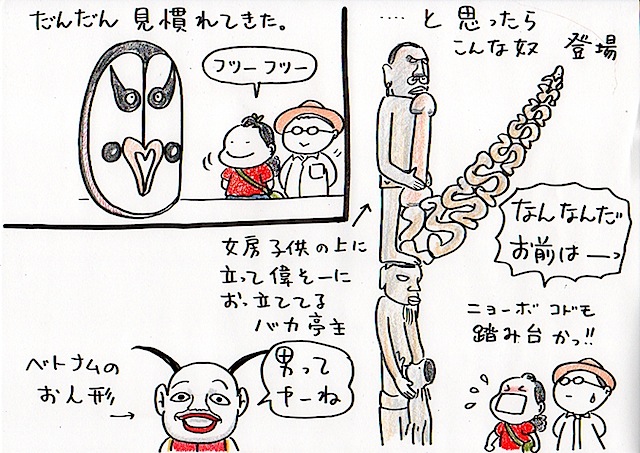 だんだん 見慣れてきた。
フツーフツー
‥‥ と 思ったら
こんな奴 登場
なんなんだ
お前はーーっ
女房子供の上に
立って偉そーに
おっ立ててる
バカ亭主
ニョーボ コドモ
踏み台かっ!!
ベトナムの
お人形
男って
やーね